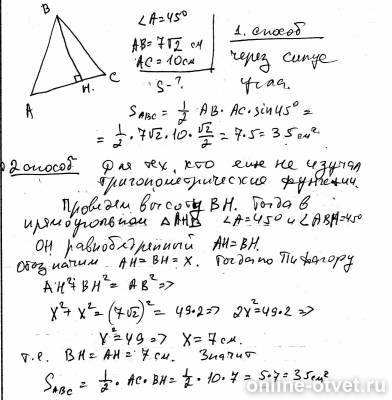 B
A
H.
C
∠A=45°
AB=7√2 см
AC=10см
S-?
1. способ
через синус
угла.
S ABC = 1/2 AB·AC·sin45° =
= 1/2·7√2·10·√2/2 = 7·5=35см²
2 способ Для тех, кто еще не изучал
тригонометрические функции.
Проведем высоту BH. Тогда в
прямоугольном △AHB ∠A=45° и ∠ABH=45°
ОН равнобедренный AH=BH.
Обозначим AH=BH=X. Тогда по Пифагору
AH²+BH²=AB² =>
X²+X²=(7√2)²=49·2 => 2X²=49·2 =>
X²=49 => X=7см.
т.е. BH=AH=7см. Значит
S ABC = 1/2·AC·BH = 1/2·10·7=5·7=35см²
online-otvet.ru